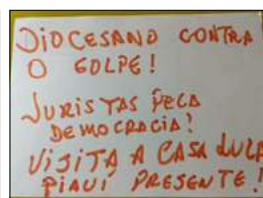 DIOCESANO CONTRA
O GOLPE!
JURISTAS PELA
DEMOCRACIA!
VISITA A CASA LULA
PIAUÍ PRESENTE!